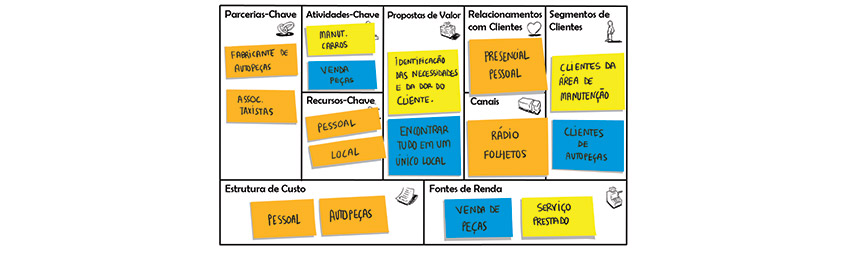 Parcerias-Chave
FABRICANTE DE
AUTOPEÇAS
ASSOC.
TAXISTAS
Atividades-Chave
MANUT.
CARROS
VENDA
PEÇAS
Recursos-Chave
PESSOAL
LOCAL
Propostas de Valor
IDENTIFICAÇÃO
DAS NECESSIDADES
E DA DOR DO
CLIENTE.
ENCONTRAR
TUDO EM UM
ÚNICO LOCAL
Relacionamentos
com Clientes
PRESENCIAL
PESSOAL
Canais
RÁDIO
FOLHETOS
Segmentos de
Clientes
CLIENTES DA
ÁREA DE
MANUTENÇÃO
CLIENTES
DE
AUTOPEÇAS
Estrutura de Custo
PESSOAL
AUTOPEÇAS
Fontes de Renda
VENDA DE
PEÇAS
SERVIÇO
PRESTADO